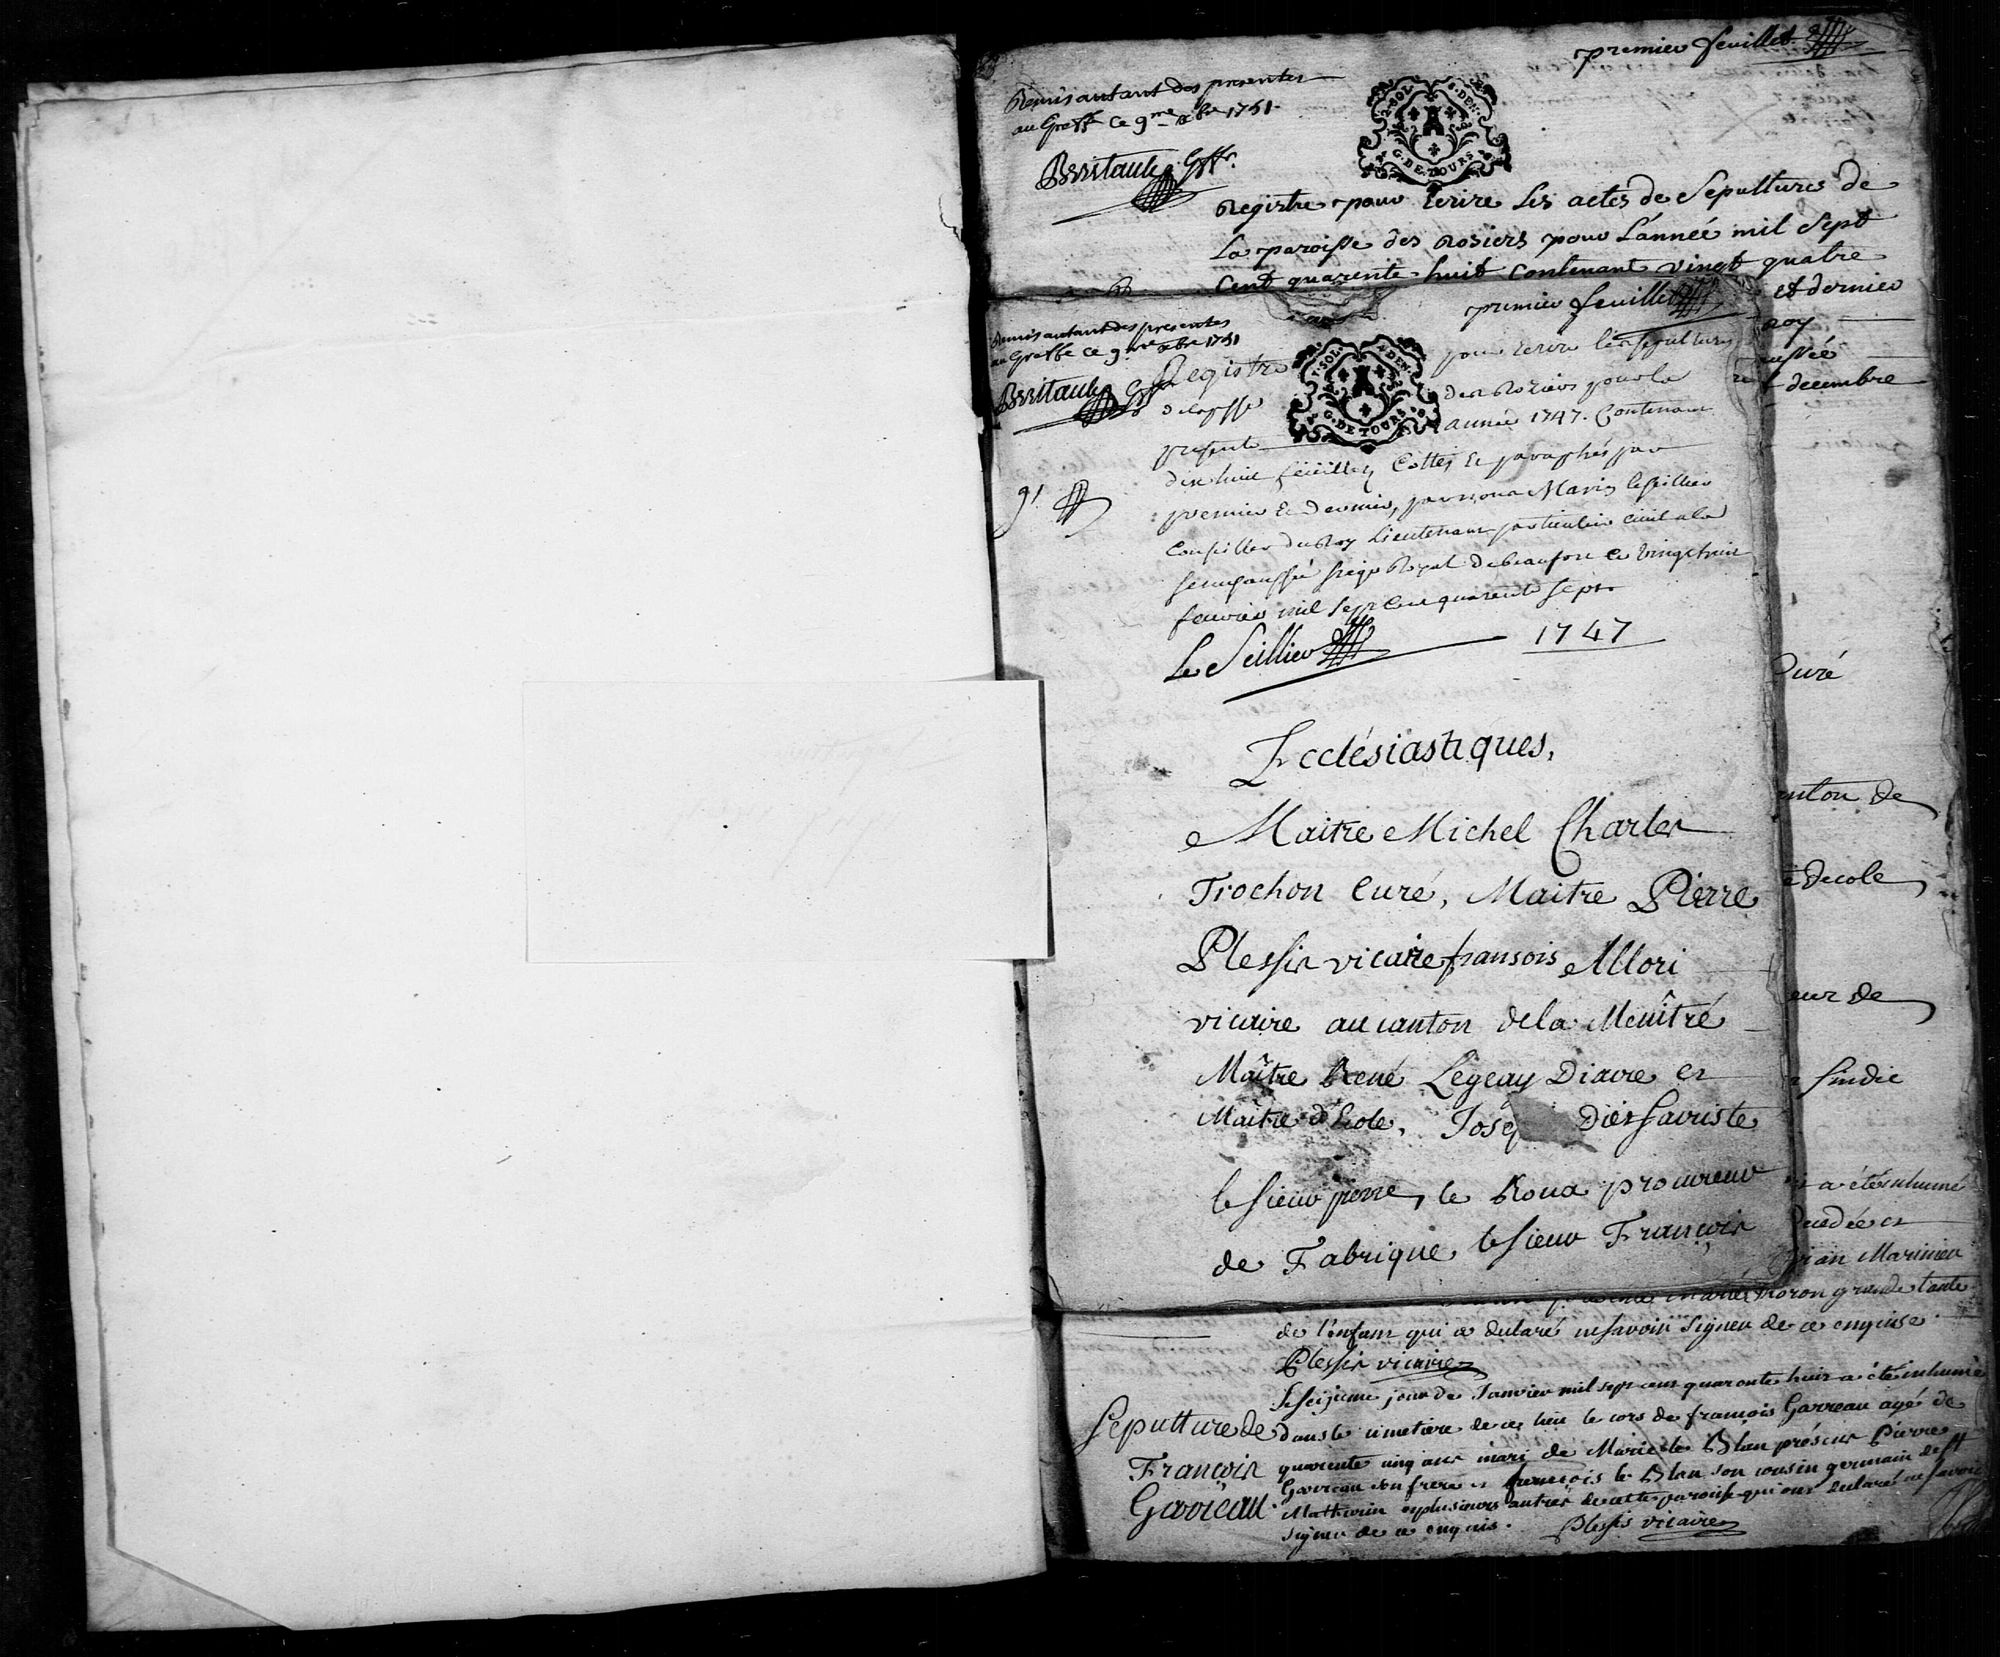 premier feuillet
Remis autant des presentes
au Greffe ce 9me xbre 1751.
2.SOL. 8.DEN.
G.DE.TOURS
Registre pour Ecrire les actes de Sepultures de
La paroisse des Rosiers pour L'année mil Sept
Cent quarente huit contenant vingt quatre
et dernier
Roy
aussée
decembre
Curé
anton de
decole
eur de
sindic
a été inhumé
decedée et
Marinier
premier feuillet
Remis autant des presentes
au Greffe ce 9me xbre 1751
G.DE TOURS
Registre pour Ecrire les sepultures
de la psse des Roziers pour la
presente année 1747. Contenant
dix huit feüillets Cottés et paraphés par
premier et dernier, par nous Marin le Seillier
Conseiller du Roy Lieutenant particulier Civil a la
senechaussée siege Royal de Beaufort ce vingt huit
fevrier mil sept cent quarente sept.
Le Seillier 1747
Ecclésiastiques,
Maitre Michel Charles
Trochon Curé, Maitre Pierre
Plessis vicaire fransois Allori
vicaire au canton de la Menîtré
Maître René Legeay Diacre et
Maître d'Ecole, Jos Dies sacriste
le sieur pierre, le Roua procureur
de Fabrique, le sieur François
marie Moron grande tante
de l'enfant qui a declaré ne savoir signer de ce enquise
Plessis vicaire
Sepulture de
François
Garreau
le seizieme jour de Janvier mil sept cent quarante huit a été inhumé
dans le cimetiere de ce lieu le cors de francois Garreau agé de
quarente cinq ans mari de Marie le Blan présens Pierre
Garreau son frere et francois le Blan son cousin germain de St
Mathurin et plusieurs autres de cette paroisse qui ont declaré ne savoir
signer de ce enquis. Plessis vicaire